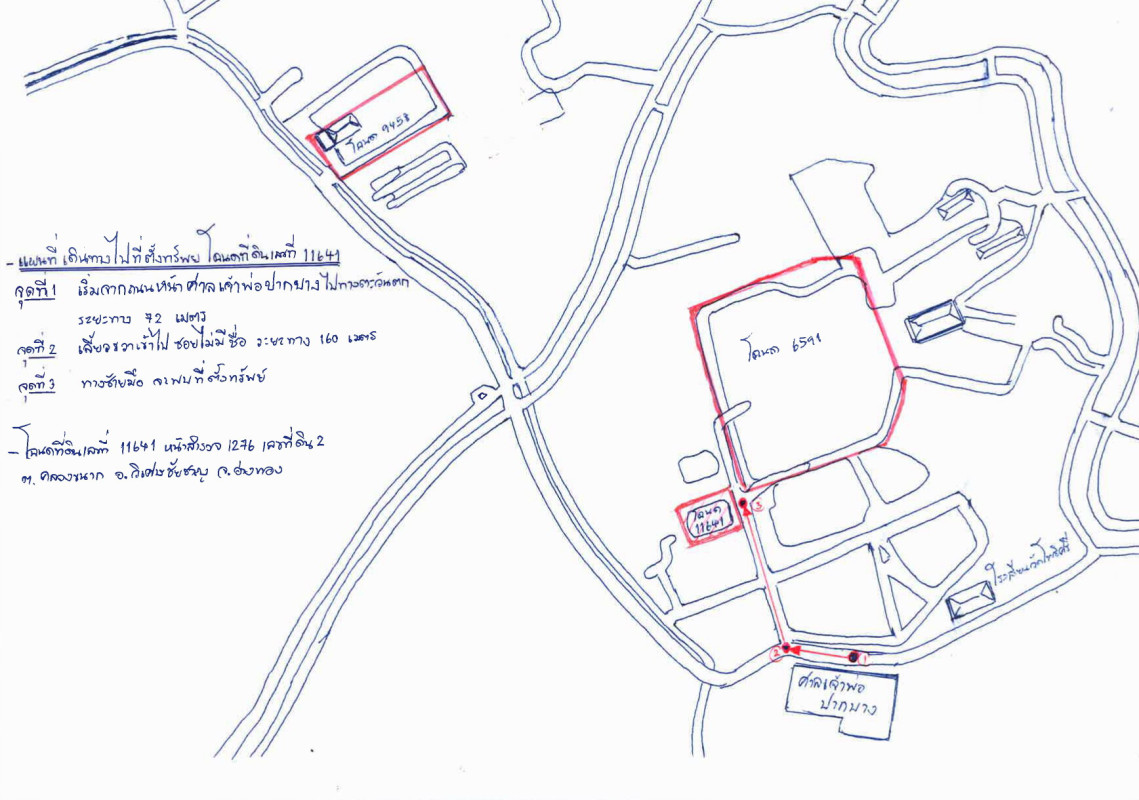 - แผนที่เดินทางไปที่ตั้งทรัพย์ โฉนดที่ดินเลขที่ 11641
จุดที่ 1 เริ่มจากถนนหน้าศาลเจ้าพ่อปากบางไปทางตะวันตก
ระยะทาง 72 เมตร
จุดที่ 2 เลี้ยวขวาเข้าไปซอยไม่มีชื่อ ระยะทาง 160 เมตร
จุดที่ 3 ทางซ้ายมือ จะพบที่ตั้งทรัพย์
- โฉนดที่ดินเลขที่ 11641 หน้าสำรวจ 1276 เลขที่ดิน 2
ต. คลองขนาก อ.วิเศษชัยชาญ จ.อ่างทอง
โฉนด 9458
โฉนด 6591
โฉนด
11641
3
2
1
โรงเรียนวัดโพธิศรี
ศาลเจ้าพ่อ
ปากบาง